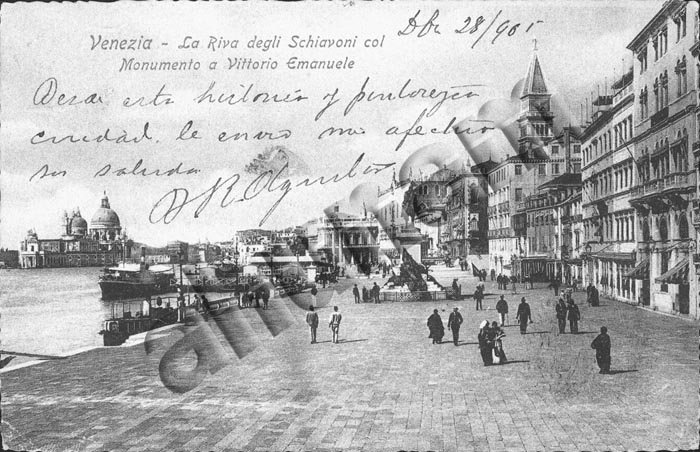 Dbre 28/905
Venezia - La Riva degli Schiavoni col
Monumento a Vittorio Emanuele
Desde esta historica y pintorezca
ciudad, le envio mi afectuoso
saludo